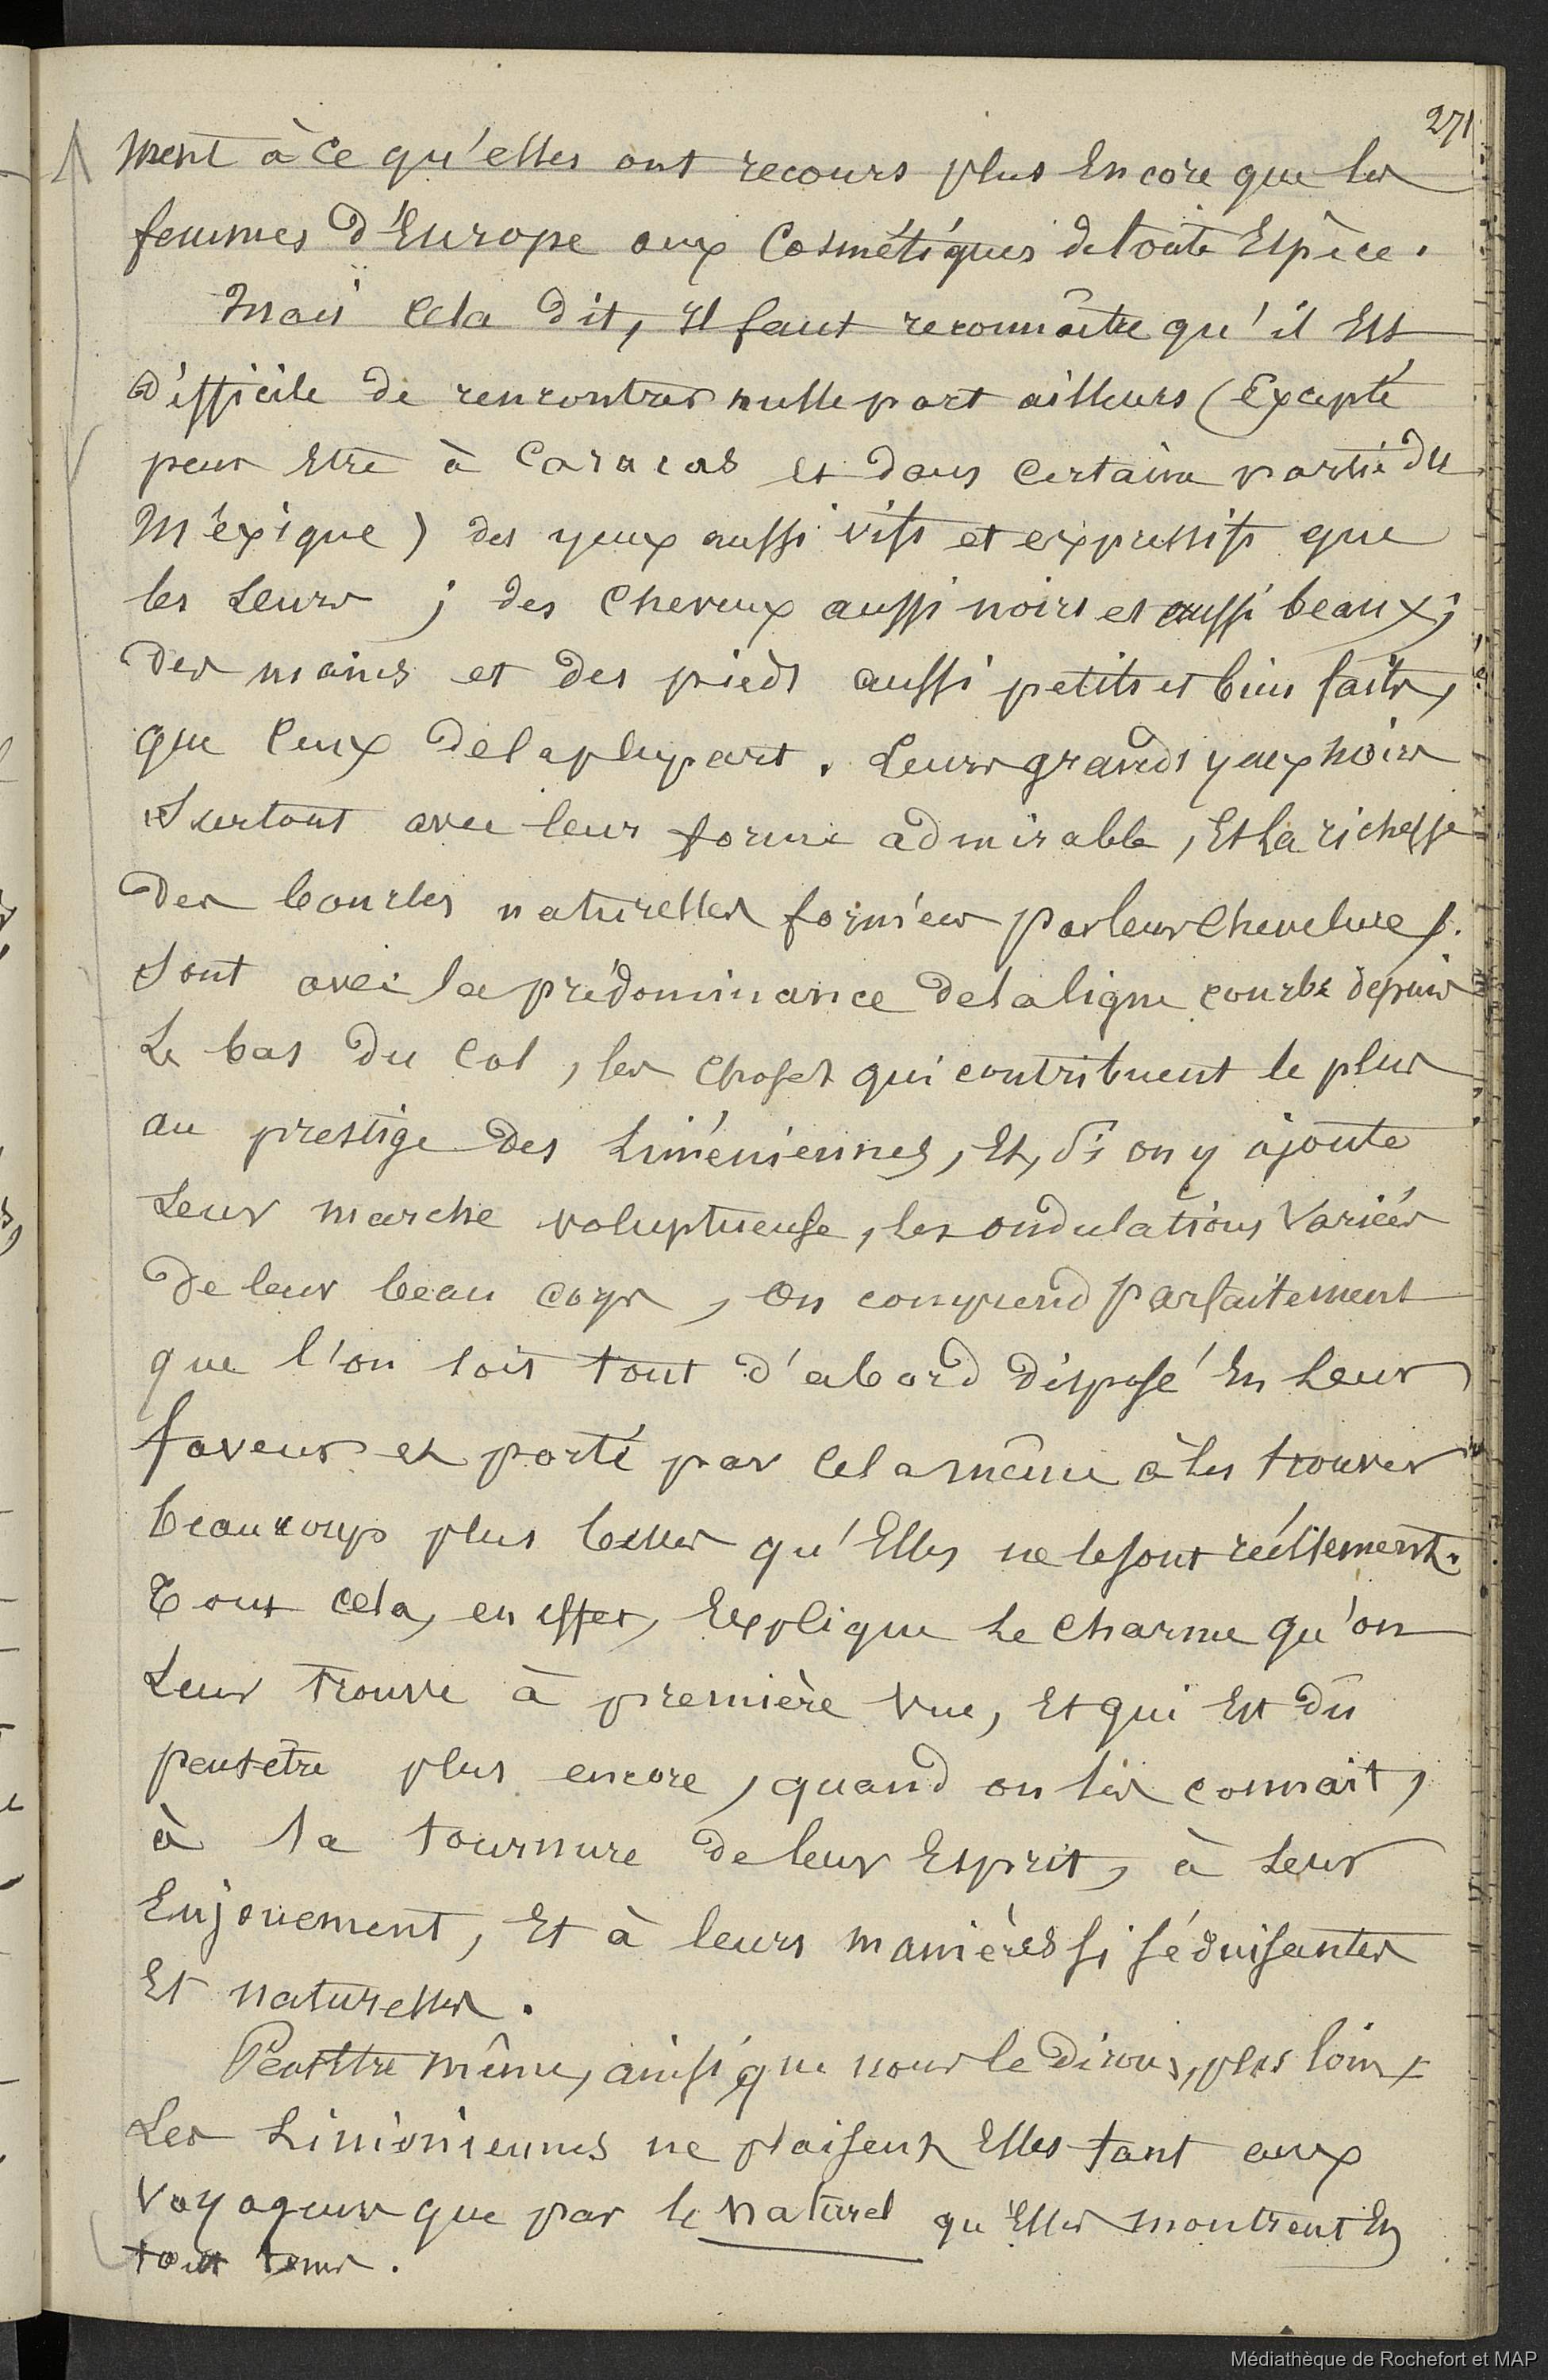 271
ment à ce qu'elles ont recours plus encore que les
femmes d'Europe aux Cosmétiques de toute Espèce.
Mais Cela dit, Il faut reconnaître qu'il Est
difficile de rencontrer nulle part ailleurs (Excepté
peut Etre à Caracas et dans Certaine partie du
Méxique) des yeux aussi vifs et expressifs que
les Leurs ; des Cheveux aussi noirs et aussi beaux ;
des mains et des pieds aussi petits et bien faits,
que Ceux de la plupart. Leurs grands yeux noirs
Surtout avec leur forme admirable, Et La richesse
des boucles naturelles formées par leur Chevelure,
Sont avec la prédominance de la ligne courbe depuis
Le bas du Col, les Choses qui contribuent le plus
au prestige des Liméniennes, Et, Si on y ajoute
Leur marche voluptueuse, les ondulations Variées
de leur beau corps, On comprend parfaitement
que l'on soit tout d'abord disposé En Leur
faveur et porté par Cela même à les trouver
beaucoup plus belles qu'Elles ne le sont réellement.
Tout cela, en effet, Explique Le Charme qu'on
Leur trouve à première Vue, Et qui Est dû
peut être plus encore, quand on les connait,
à la tournure de leur Esprit, à Leur
Enjouement, Et à leurs manières si séduisantes
Et naturelles.
Peut Etre même, ainsi que nous le dirons, plus loin,
Les Liméniennes ne plaisent Elles tant aux
Voyageurs que par le naturel qu'Elles montrent En
tout tems.
Médiathèque de Rochefort et MAP